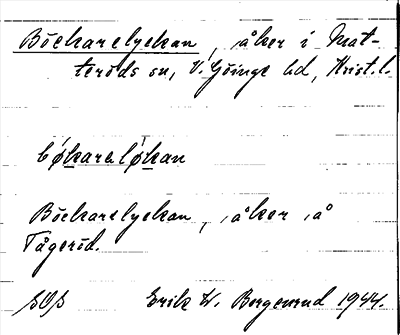 Böckarelyckan, åker i Mat-
teröds sn, V. Göinge hd, Krist. l.
bǿkareløkan
Böckarelyckan, åker å
Tågeröd.
Erik W. Bergenrud 1944.